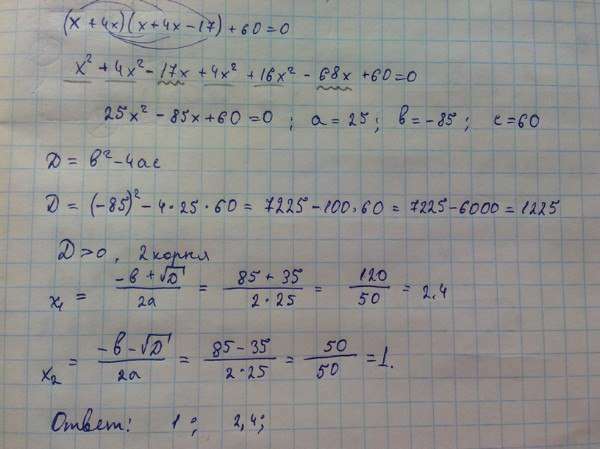 (x + 4x)(x + 4x - 17) + 60 = 0
x² + 4x² - 17x + 4x² + 16x² - 68x + 60 = 0
25x² - 85x + 60 = 0 ; a = 25 ; в = -85 ; c = 60
D = в² - 4ac
D = (-85)² - 4·25·60 = 7225 - 100·60 = 7225 - 6000 = 1225
D > 0, 2 корня
x₁ = (-в + √D)/(2a) = (85 + 35)/(2·25) = 120/50 = 2,4
x₂ = (-в - √D)/(2a) = (85 - 35)/(2·25) = 50/50 = 1.
Ответ: 1 ; 2,4 ;